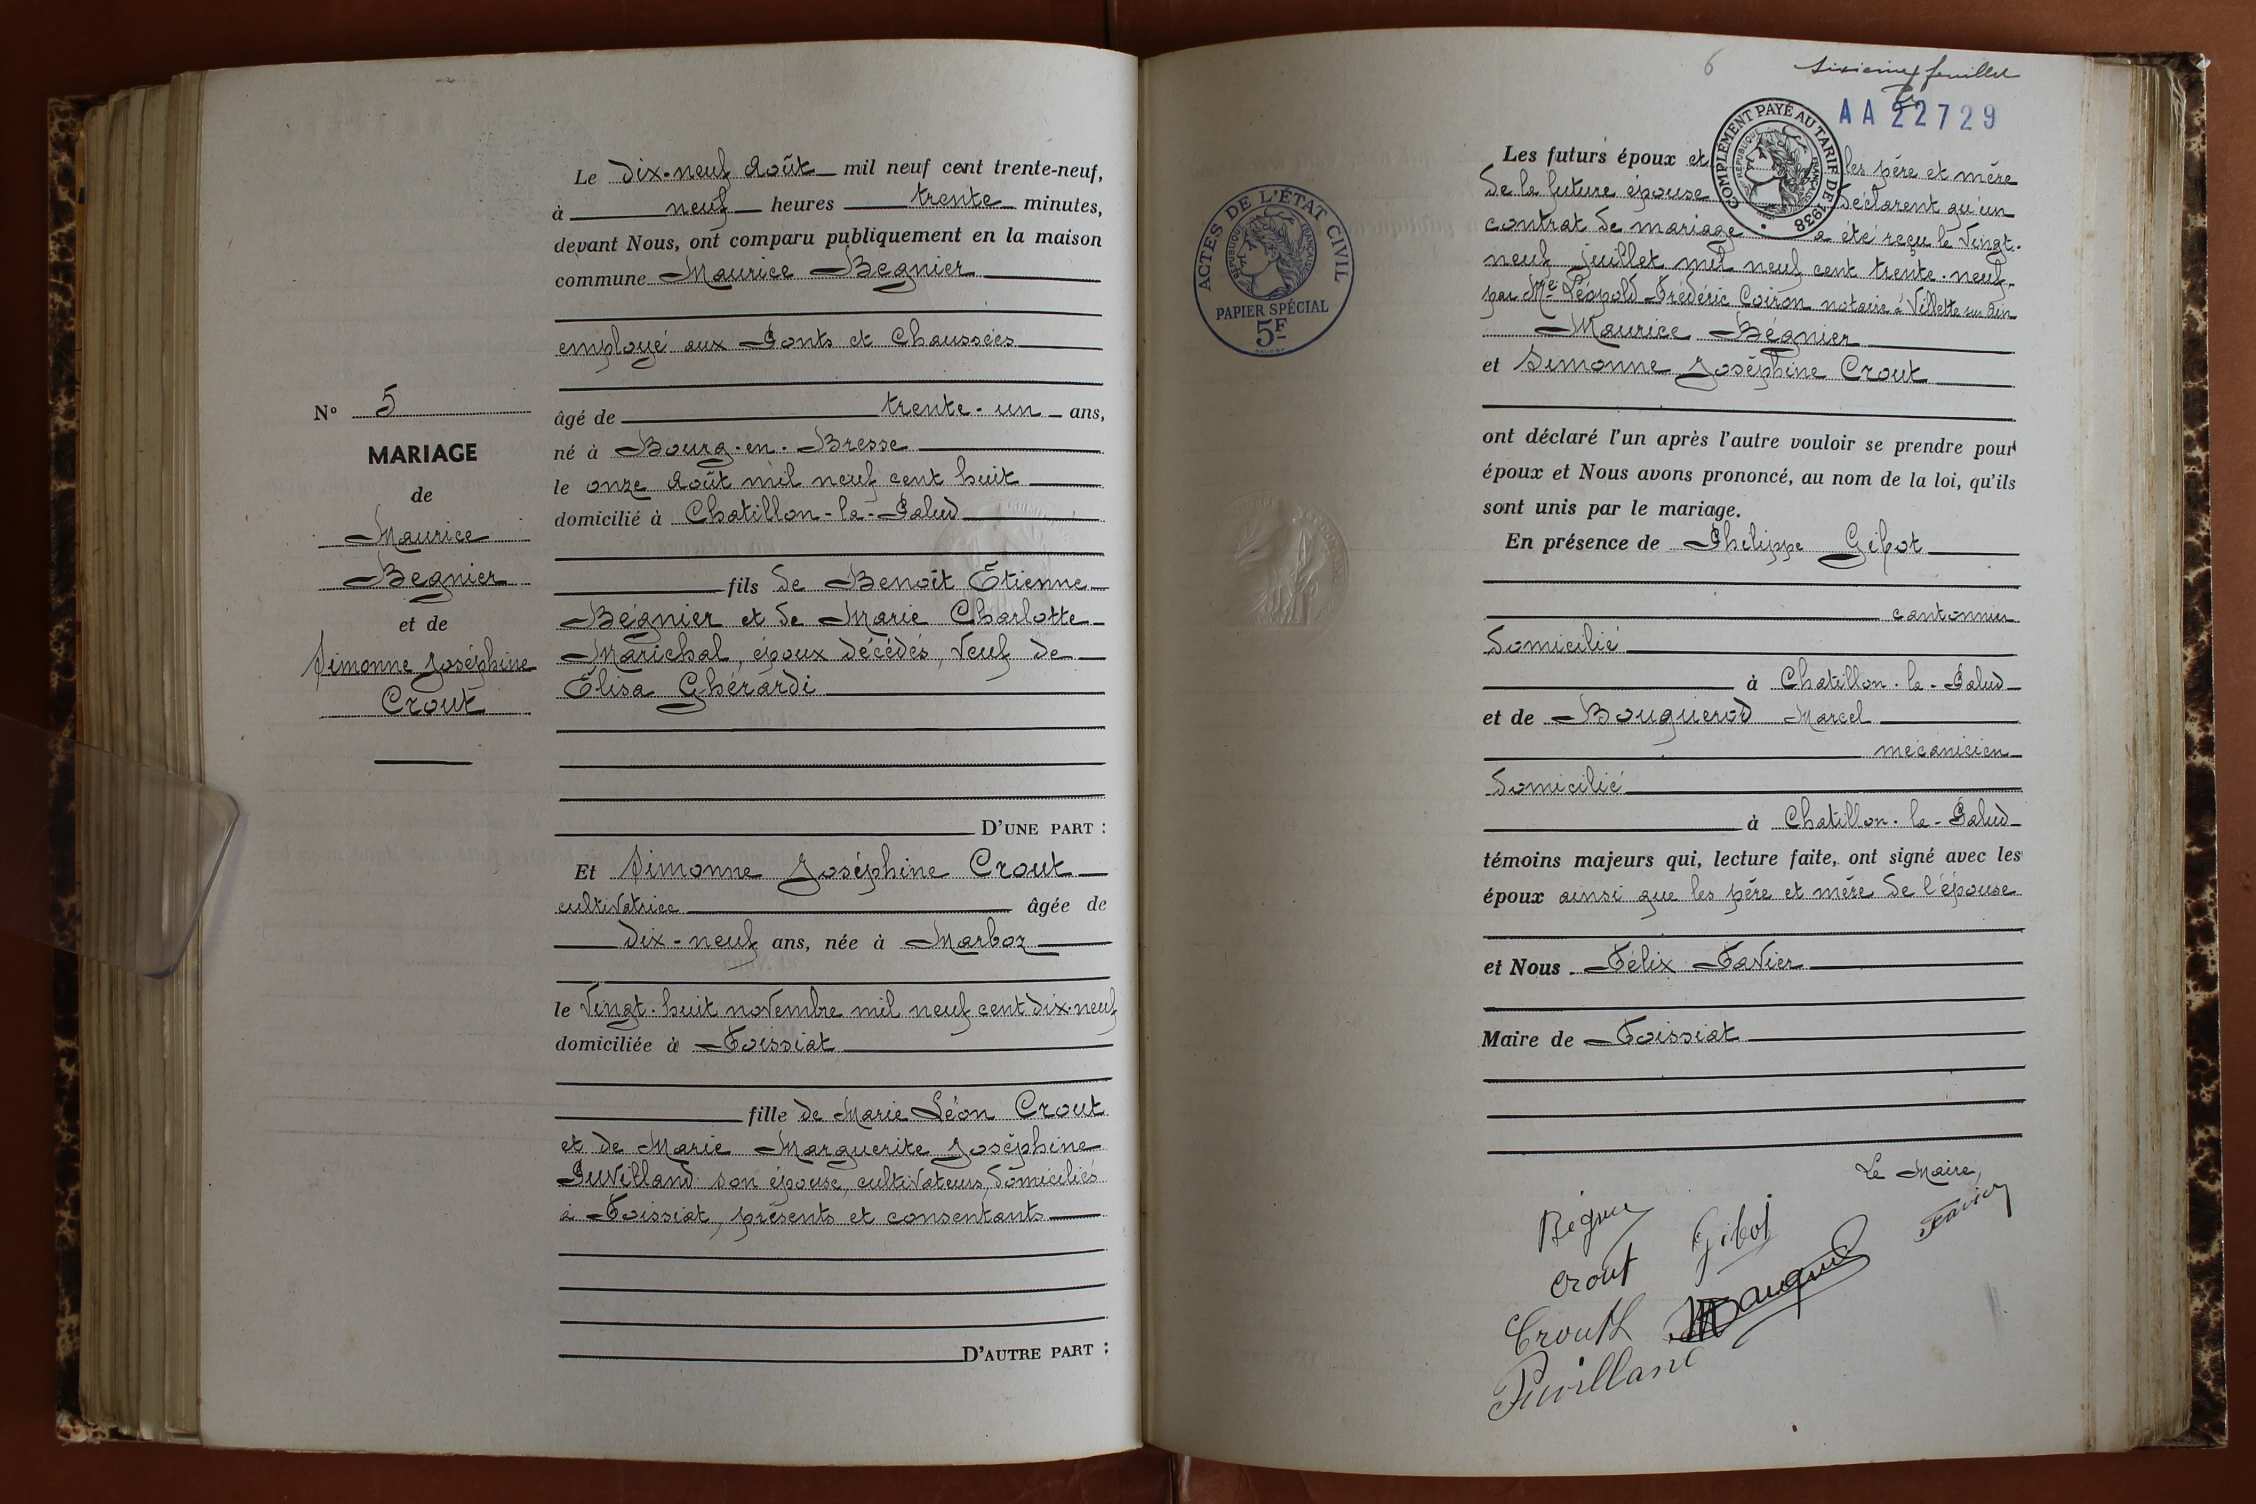 Le dix-neuf Août mil neuf cent trente-neuf,
à neuf heures trente minutes,
devant Nous, ont comparu publiquement en la maison
commune Maurice Begnier
employé aux Ponts et Chaussées
âgé de trente-un ans,
né à Bourg-en-Bresse
le onze Août mil neuf cent huit
domicilié à Chatillon-la-Palud
fils de Benoît Etienne
Bégnier et de Marie Charlotte
Maréchal, époux décédés, veuf de
Elisa Ghérardi
D'UNE PART :
Et Simonne Joséphine Crout
cultivatrice âgée de
dix-neuf ans, née à Marboz
le vingt-huit novembre mil neuf cent dix-neuf
domiciliée à Foissiat
fille de Marie Léon Crout
et de Marie Marguerite Joséphine
Puvilland son épouse, cultivateurs, domiciliés
à Foissiat, présents et consentants
D'AUTRE PART :
No 5
MARIAGE
de
Maurice
Begnier
et de
Simonne Joséphine
Crout
6 sixième feuillet
AA 22729
COMPLÉMENT PAYÉ AU TARIF DE 1938
RÉPUBLIQUE FRANÇAISE
ACTES DE L'ÉTAT CIVIL
RÉPUBLIQUE FRANÇAISE
PAPIER SPÉCIAL
5F
Les futurs époux et les père et mère
de la future épouse déclarent qu'un
contrat de mariage a été reçu le vingt-
neuf juillet mil neuf cent trente-neuf
par Me Léopold Frédéric Coiron notaire à Villette sur Ain
Maurice Bégnier
et Simonne Joséphine Crout
ont déclaré l'un après l'autre vouloir se prendre pour
époux et Nous avons prononcé, au nom de la loi, qu'ils
sont unis par le mariage.
En présence de Philippe Gibot
cantonnier
domicilié
à Chatillon-la-Palud
et de Bouguerod Marcel
mécanicien
domicilié
à Chatillon-la-Palud
témoins majeurs qui, lecture faite, ont signé avec les
époux ainsi que les père et mère de l'épouse
et Nous Félix Favier
Maire de Foissiat
Le Maire,
Bégnier
Gibot
Favier
Crout
Crouth
Puvilland